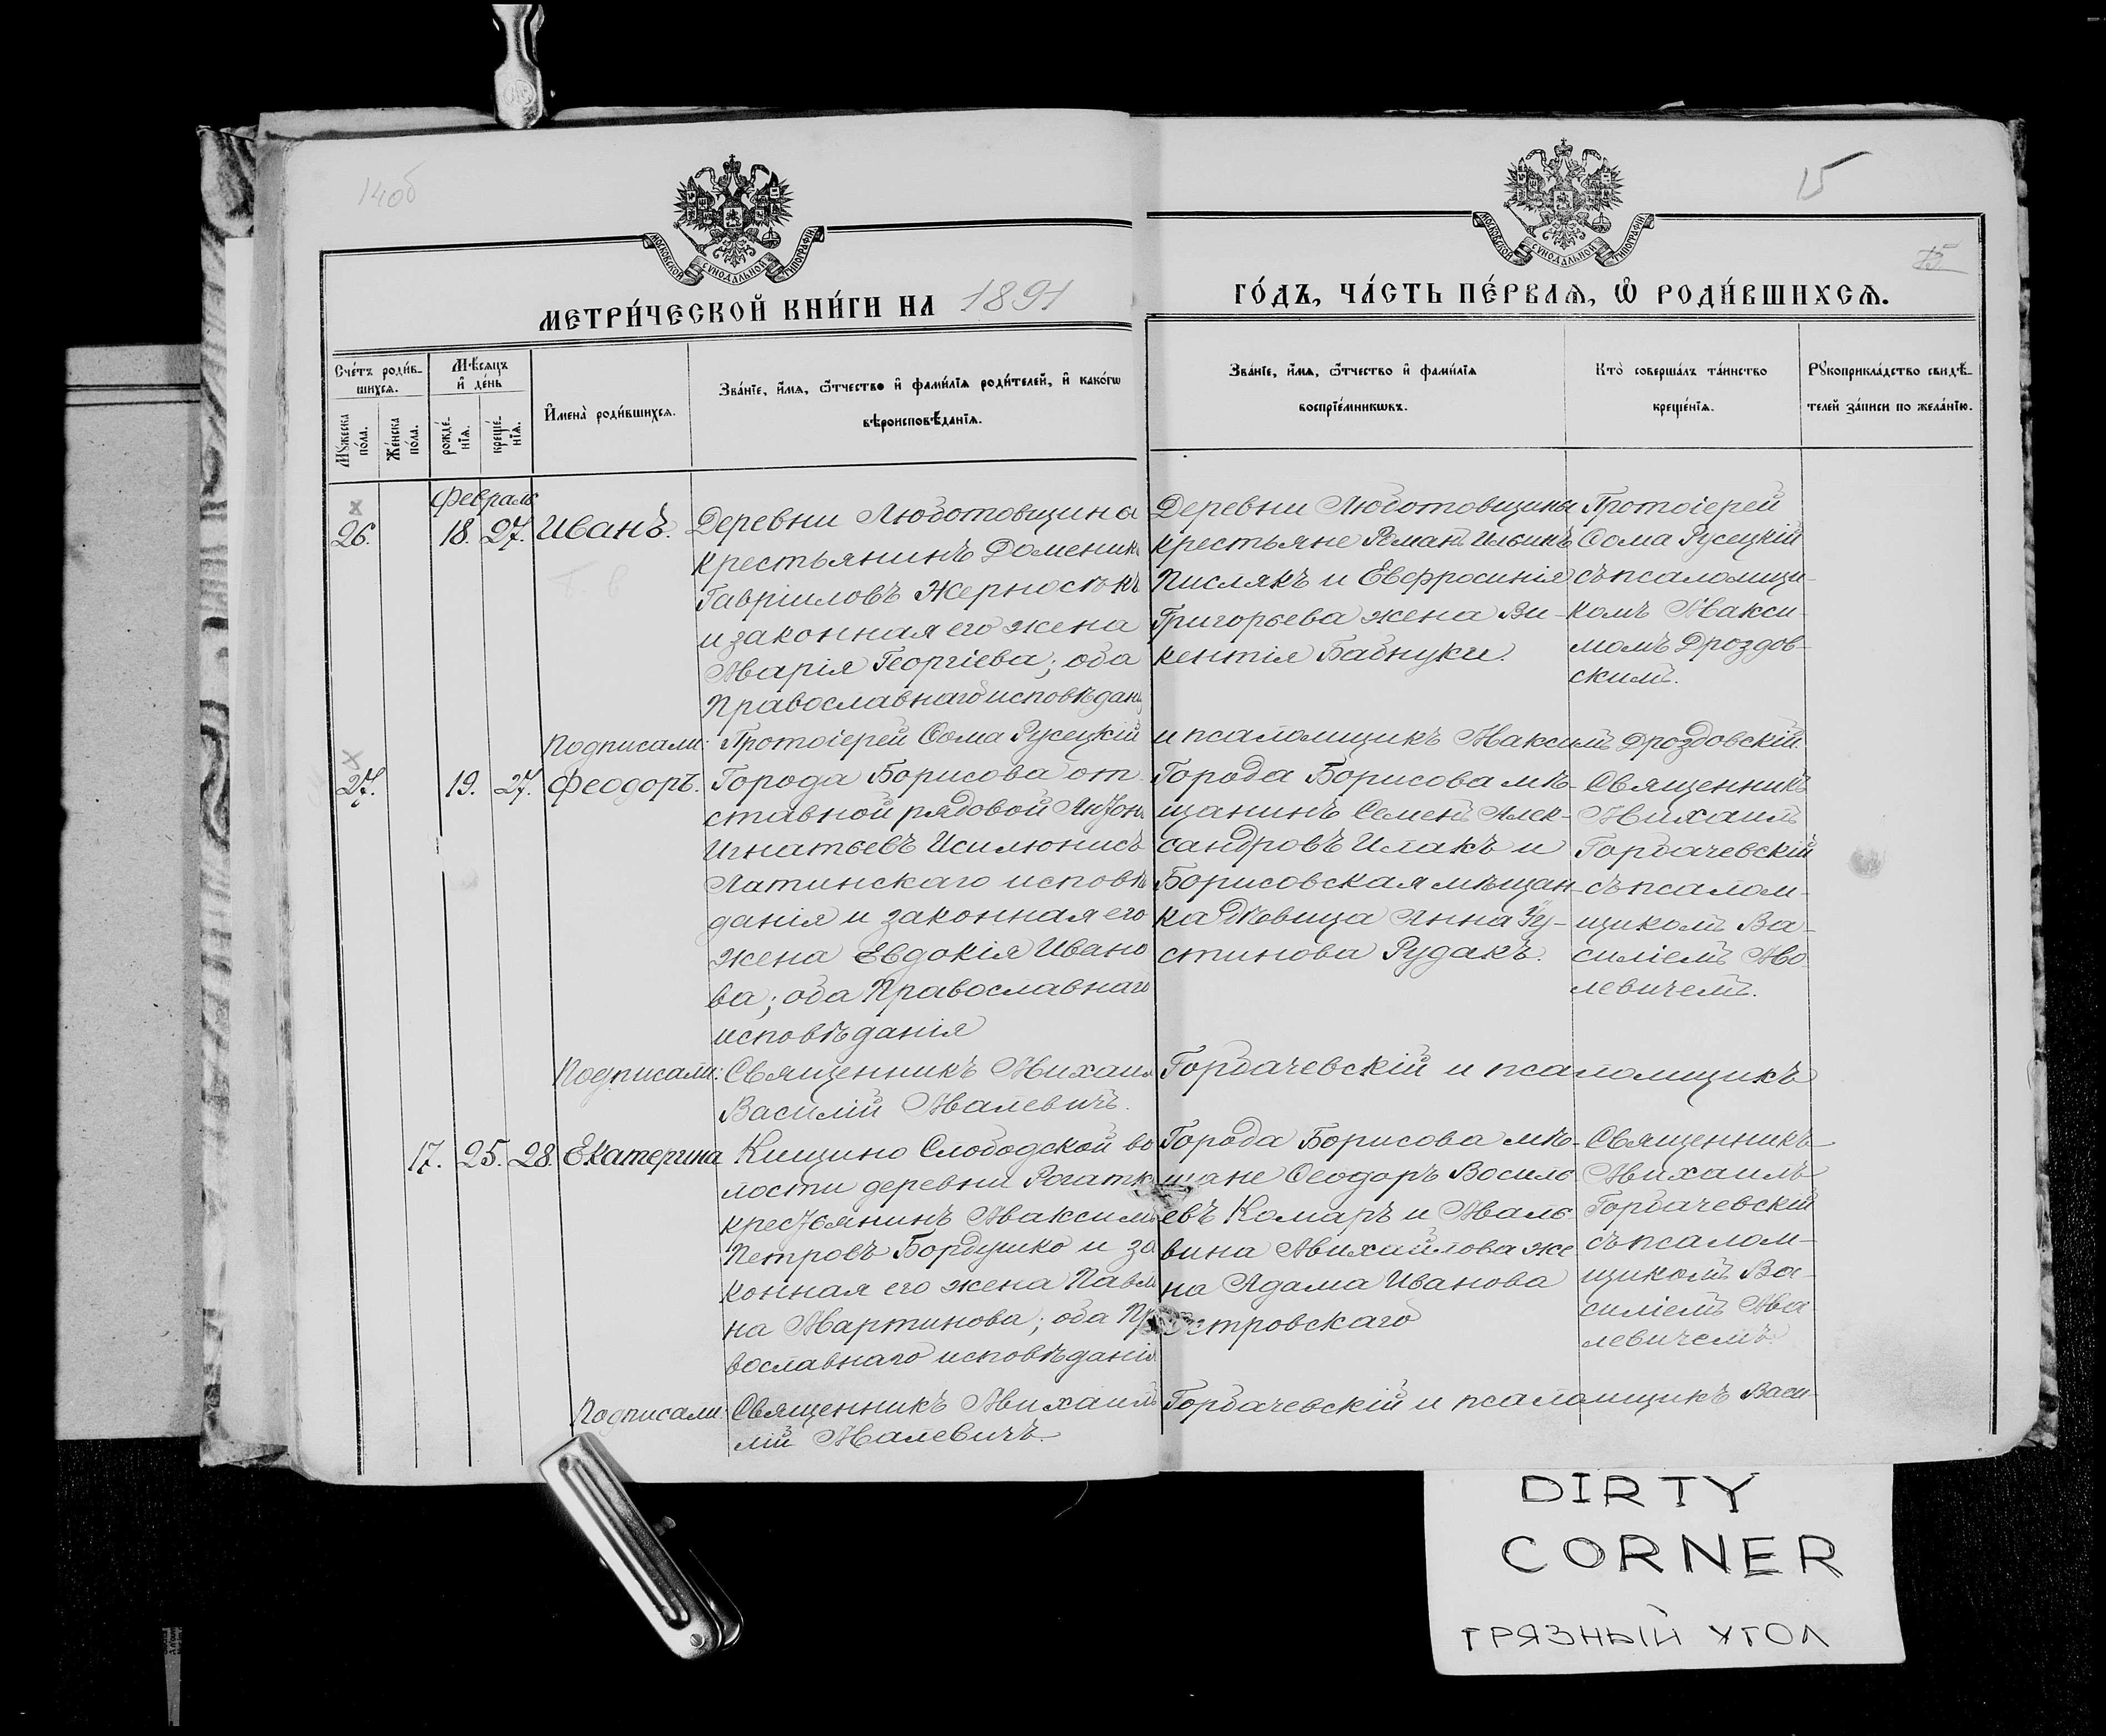 14об
15
15
МОСКОВСКОЙ СѴНОДАЛЬНОЙ ТИПОГРАФІИ
МОСКОВСКОЙ СѴНОДАЛЬНОЙ ТИПОГРАФІИ
МЕТРИ́ЧЕСКОЙ КНИ́ГИ НА 1891
ГО́ДЪ, ЧА́СТЬ ПЕ́РВАѦ, Ѽ РОДИ́ВШИХСѦ.
Сче́тъ роди́в-
шихсѧ.
Мѣ́сѧцъ
и҆ де́нь
Мꙋ́жеска
по́ла.
Же́нска
по́ла.
рожде́-
нїѧ.
креще́-
нїѧ.
И҆мена̀ роди́вшихсѧ.
Зва́нїе, и҆́мѧ, ѻ҆́тчество и҆ фами́лїѧ роди́телей, и҆ како́гѡ
вѣроисповѣ́данїѧ.
Зва́нїе, и҆́мѧ, ѻ҆́тчество и҆ фами́лїѧ
воспрїе́мникѡвъ.
Кто̀ соверша́лъ та́инство
креще́нїѧ.
Рꙋкоприкла́дство свидѣ́-
телей за́писи по жела́нїю.
Февраль
26. 18. 27. Иванъ.
Деревни Люботовщина
крестьянинъ Доменикъ
Гавріиловъ Жерносѣкъ
и законная его жена
Марія Георгіева; оба
Православнаго исповѣдан
Деревни Люботовщины
крестьяне Романъ Ильинъ
Пислякъ и Евфросинія
Григорьева жена Ви-
кентія Бабнуки.
Протоіерей
Ѳома Русецкій
съ псаломщи-
комъ Макси-
момъ Дроздов-
скимъ.
Подписали: Протоіерей Ѳома Русецкій и псаломщикъ Максимъ Дроздовскій.
27. 19. 27. Феодоръ.
Города Борисова от-
ставной рядовой Антонъ
Игнатьевъ
Латинскаго исповѣ
данія и законная его
жена Евдокія Ивано
ва; оба Православнаго
исповѣданія
Города Борисова мѣ-
щанинъ Семенъ Алек-
сандровъ Илакъ и
Борисовская мѣщан-
ка дѣвица Анна Іу-
стинова Рудакъ.
Священникъ
Михаилъ
Горбачевскій
съ псалом-
щикомъ Ва-
силіемъ Мо-
левичемъ.
Подписали: Священникъ Михаилъ Горбачевскій и псаломщикъ
Василій Малевичъ.
17. 25. 28. Екатерина
Кищино Слободской во
лости деревни Рогатк
крестьянинъ Максимъ
Петровъ Бордушко и за
конная его жена Павли
на Мартинова; оба Пр
вославнаго исповѣданія
Города Борисова мѣ-
щане Ѳеодоръ Василь
евъ Комаръ и Маль-
вина Михайлова же
на Адама Иванова
Петровскаго
Священникъ
Михаилъ
Горбачевскій
съ псалом-
щикомъ Ва-
силіемъ Ма-
левичемъ.
Подписали: Священникъ Михаилъ Горбачевскій и псаломщикъ Васи-
лій Малевичъ.
DIRTY
CORNER
ГРЯЗНЫЙ УГОЛ